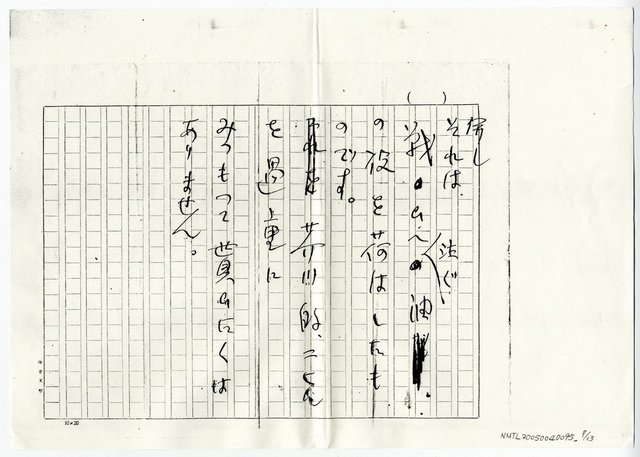 併し
それは
戦の 注ぐ 油
の役を荷はしたも
のです。
芥川的
を過重に
みつもつて貰ひにくは
ありません。
10×20
NMTL20050040095. 9/13